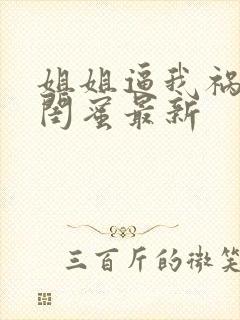 姐姐逼我祸
闺蜜最新
三百斤的微笑